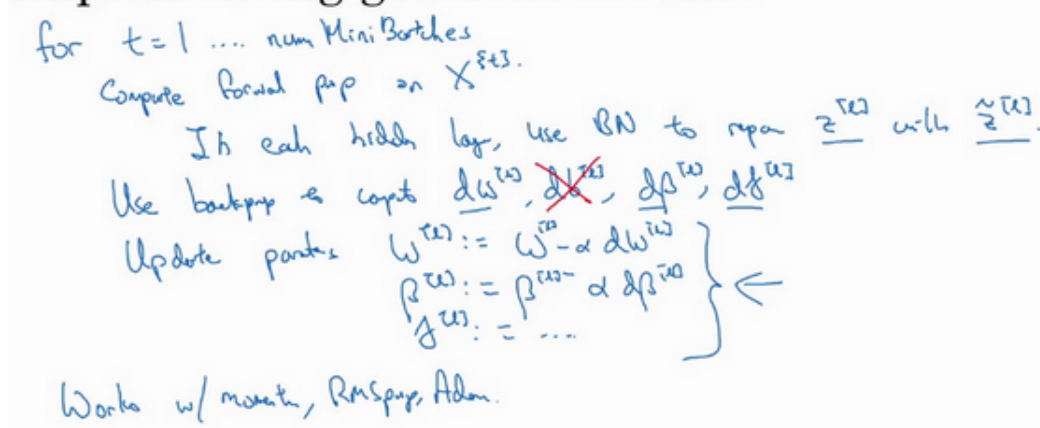 for t=1 .... num Mini Batches
Compute forward prop on X^{t}.
In each hidden lay, use BN to repa z^[l] with z̃^[l].
Use backprop to compt dw^[l], db^[l], dβ^[l], dγ^[l]
Update parates w^[l] := w^[l] - α dw^[l]
β^[l] := β^[l] - α dβ^[l] ←
γ^[l] := ....
Works w/ moment, RMSprop, Adam.